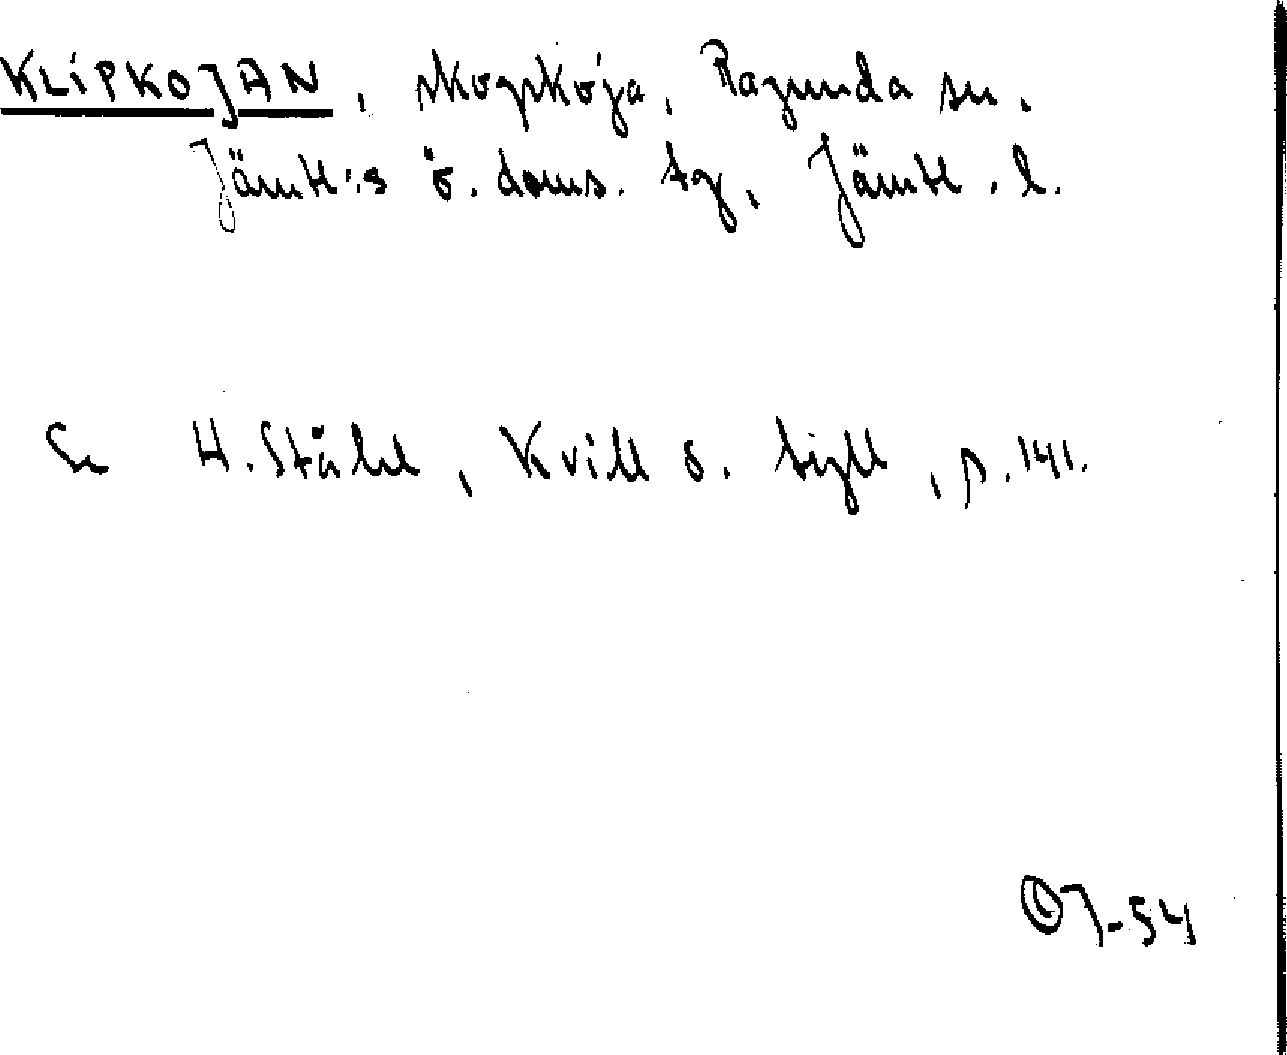 KLIPKOJAN, skogskoja, Ragunda sn,
Jämtl:s ö. doms. tg, Jämtl. l.
Se H. Ståhl, Kvill o. tigll, s. 141.
J-54